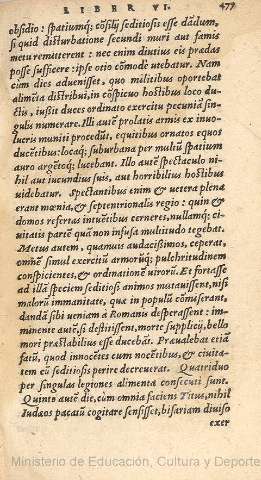 LIBER VI. 477
obsidio: spatiumq́; cōsilij seditiosis esse dādum,
si quid disturbatione secundi muri aut famis
metu remitterent: nec enim diutius eis prædas
posse sufficere: ipse otio cōmodè vtebatur. Nam
cùm dies aduenisset, quo militibus oportebat
alimēta distribui, in cōspicuo hostibus loco du
ctis, iussit duces ordinato exercitu pecuniā sin-
gulis numerare. Illi autē prolatis armis ex inuo-
lucris muniti procedūt, equitibus ornatos equos
ducētibus: locaq́; suburbana per multū spatium
auro argētoq́; lucebant. Illo autē spectaculo ni-
hil aut iucundius suis, aut horribilius hostibus
videbatur. Spectantibus enim & vetera plena
erant mœnia, & septentrionalis regio: quin &
domos refertas intuētibus cerneres, nullamq́; ci-
uitatis partē quā non infusa multitudo tegebat.
Metus autem, quamuis audacissimos, ceperat,
omnē simul exercitū armorūq́; pulchritudinem
conspicientes, & ordinationē virorū. Et fortasse
ad illā speciem seditiosi animos mutauissent, nisi
malorū immanitate, qua in populū cōmiserant,
dandā sibi veniam à Romanis desperassent: im-
minente autē, si destitissent, morte supplicij, bello
mori præstabilius esse ducebāt. Præualebat etiā
fatū, quod innocētes cum nocētibus, & ciuita-
tem cū seditiosis perire decreuerat. Quatriduo
per singulas legiones alimenta consecuti sunt.
Quinto autē die, cùm omnia faciens Titus, nihil
Iudæos pacatū cogitare sensisset, bifariam diuiso
exer
Ministerio de Educación, Cultura y Deporte